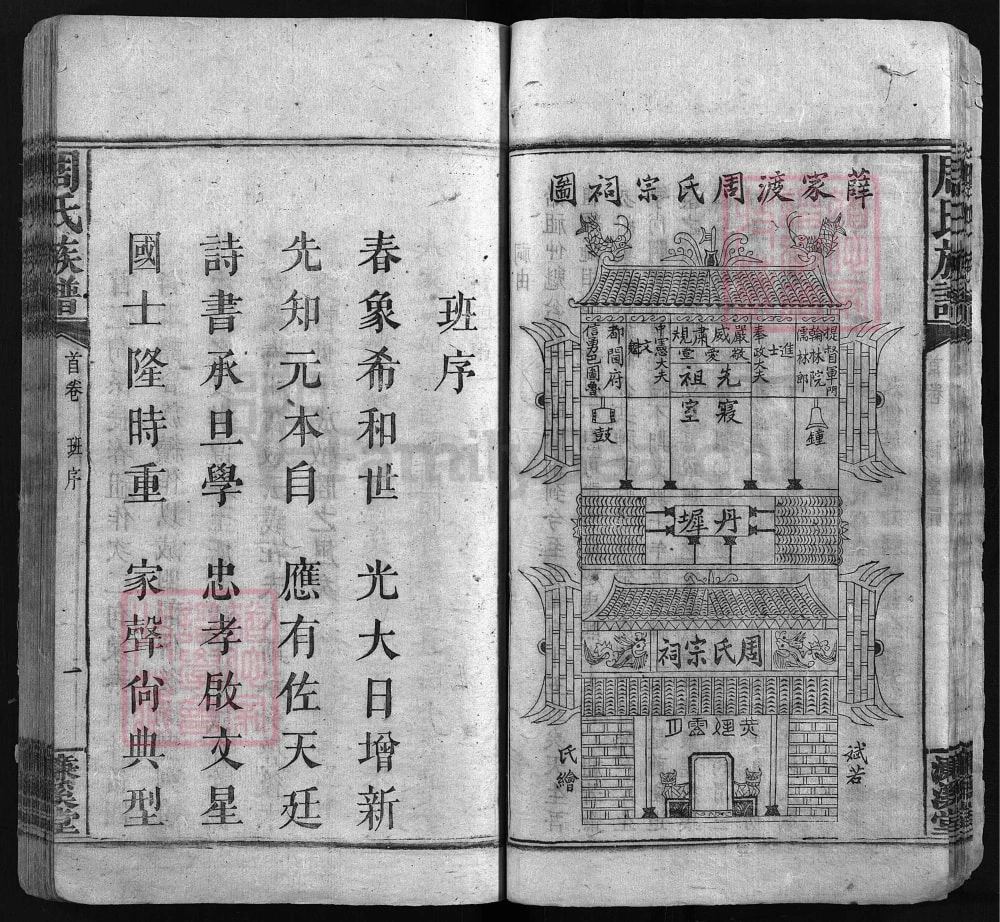 薛家渡周氏宗祠圖
提督軍門
翰林院
儒林郎
進士
奉政大夫
嚴敬
威愛
肅宣
規
先祖
中憲大夫
文魁
都閫府
信勇巴圖魯
寢室
鐘
鼓
丹墀
周氏宗祠
斌若
氏繪
周氏族譜
濂溪堂
班序
春象希和世 光大日增新
先知元本自 應有佐天廷
詩書承旦學 忠孝啟文星
國士隆時重 家聲尙典型
周氏族譜
首卷 班序
一
濂溪堂